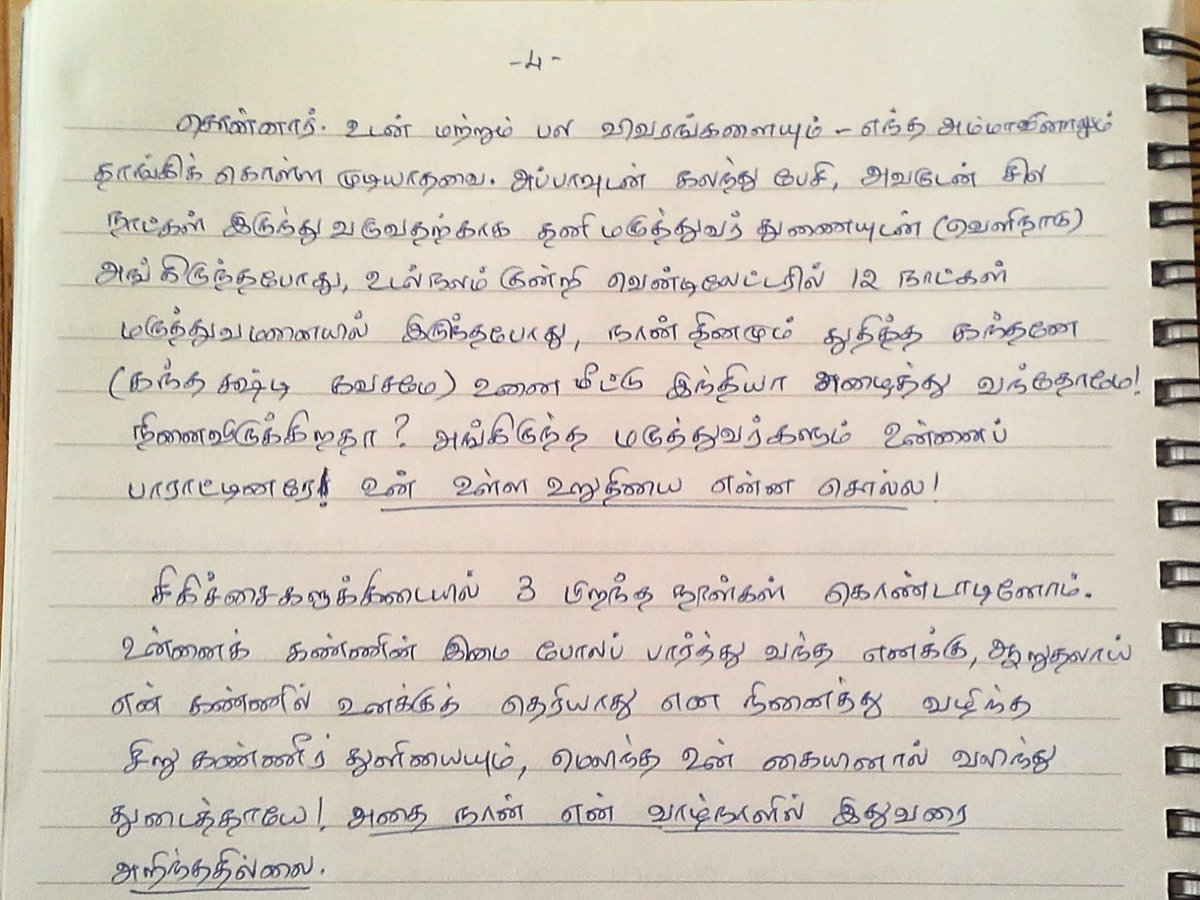 -4-
சொன்னார். உடன் மற்றும் பல விவரங்களையும் - எந்த அம்மாவினாலும்
தாங்கிக் கொள்ள முடியாதவை. அப்பாவுடன் கலந்து பேசி, அவருடன் சில
நாட்கள் இருந்து வருவதற்காக தனி மருத்துவர் துணையுடன் (வெளிநாடு)
அங்கிருந்தபோது, உடல்நலம் குன்றி வென்டிலேட்டரில் 12 நாட்கள்
மருத்துவமனையில் இருந்தபோது, நான் தினமும் துதித்த கந்தனே
(கந்த சஷ்டி கவசமே) உனை மீட்டு இந்தியா அழைத்து வந்தோமே!
நினைவிருக்கிறதா? அங்கிருந்த மருத்துவர்களும் உன்னைப்
பாராட்டினரே! உன் உள்ள உறுதியை என்ன சொல்ல!
சிகிச்சைகளுக்கிடையில் 3 பிறந்த நாள்கள் கொண்டாடினோம்.
உன்னைக் கண்ணின் இமை போலப் பார்த்து வந்த எனக்கு, ஆறுதலாய்
என் கண்ணில் உனக்குத் தெரியாது என நினைத்து வழிந்த
சிறு கண்ணீர் துளியையும், மெலிந்த உன் கையினால் வலிந்து
துடைத்தாயே! அதை நான் என் வாழ்நாளில் இதுவரை
அறிந்ததில்லை.